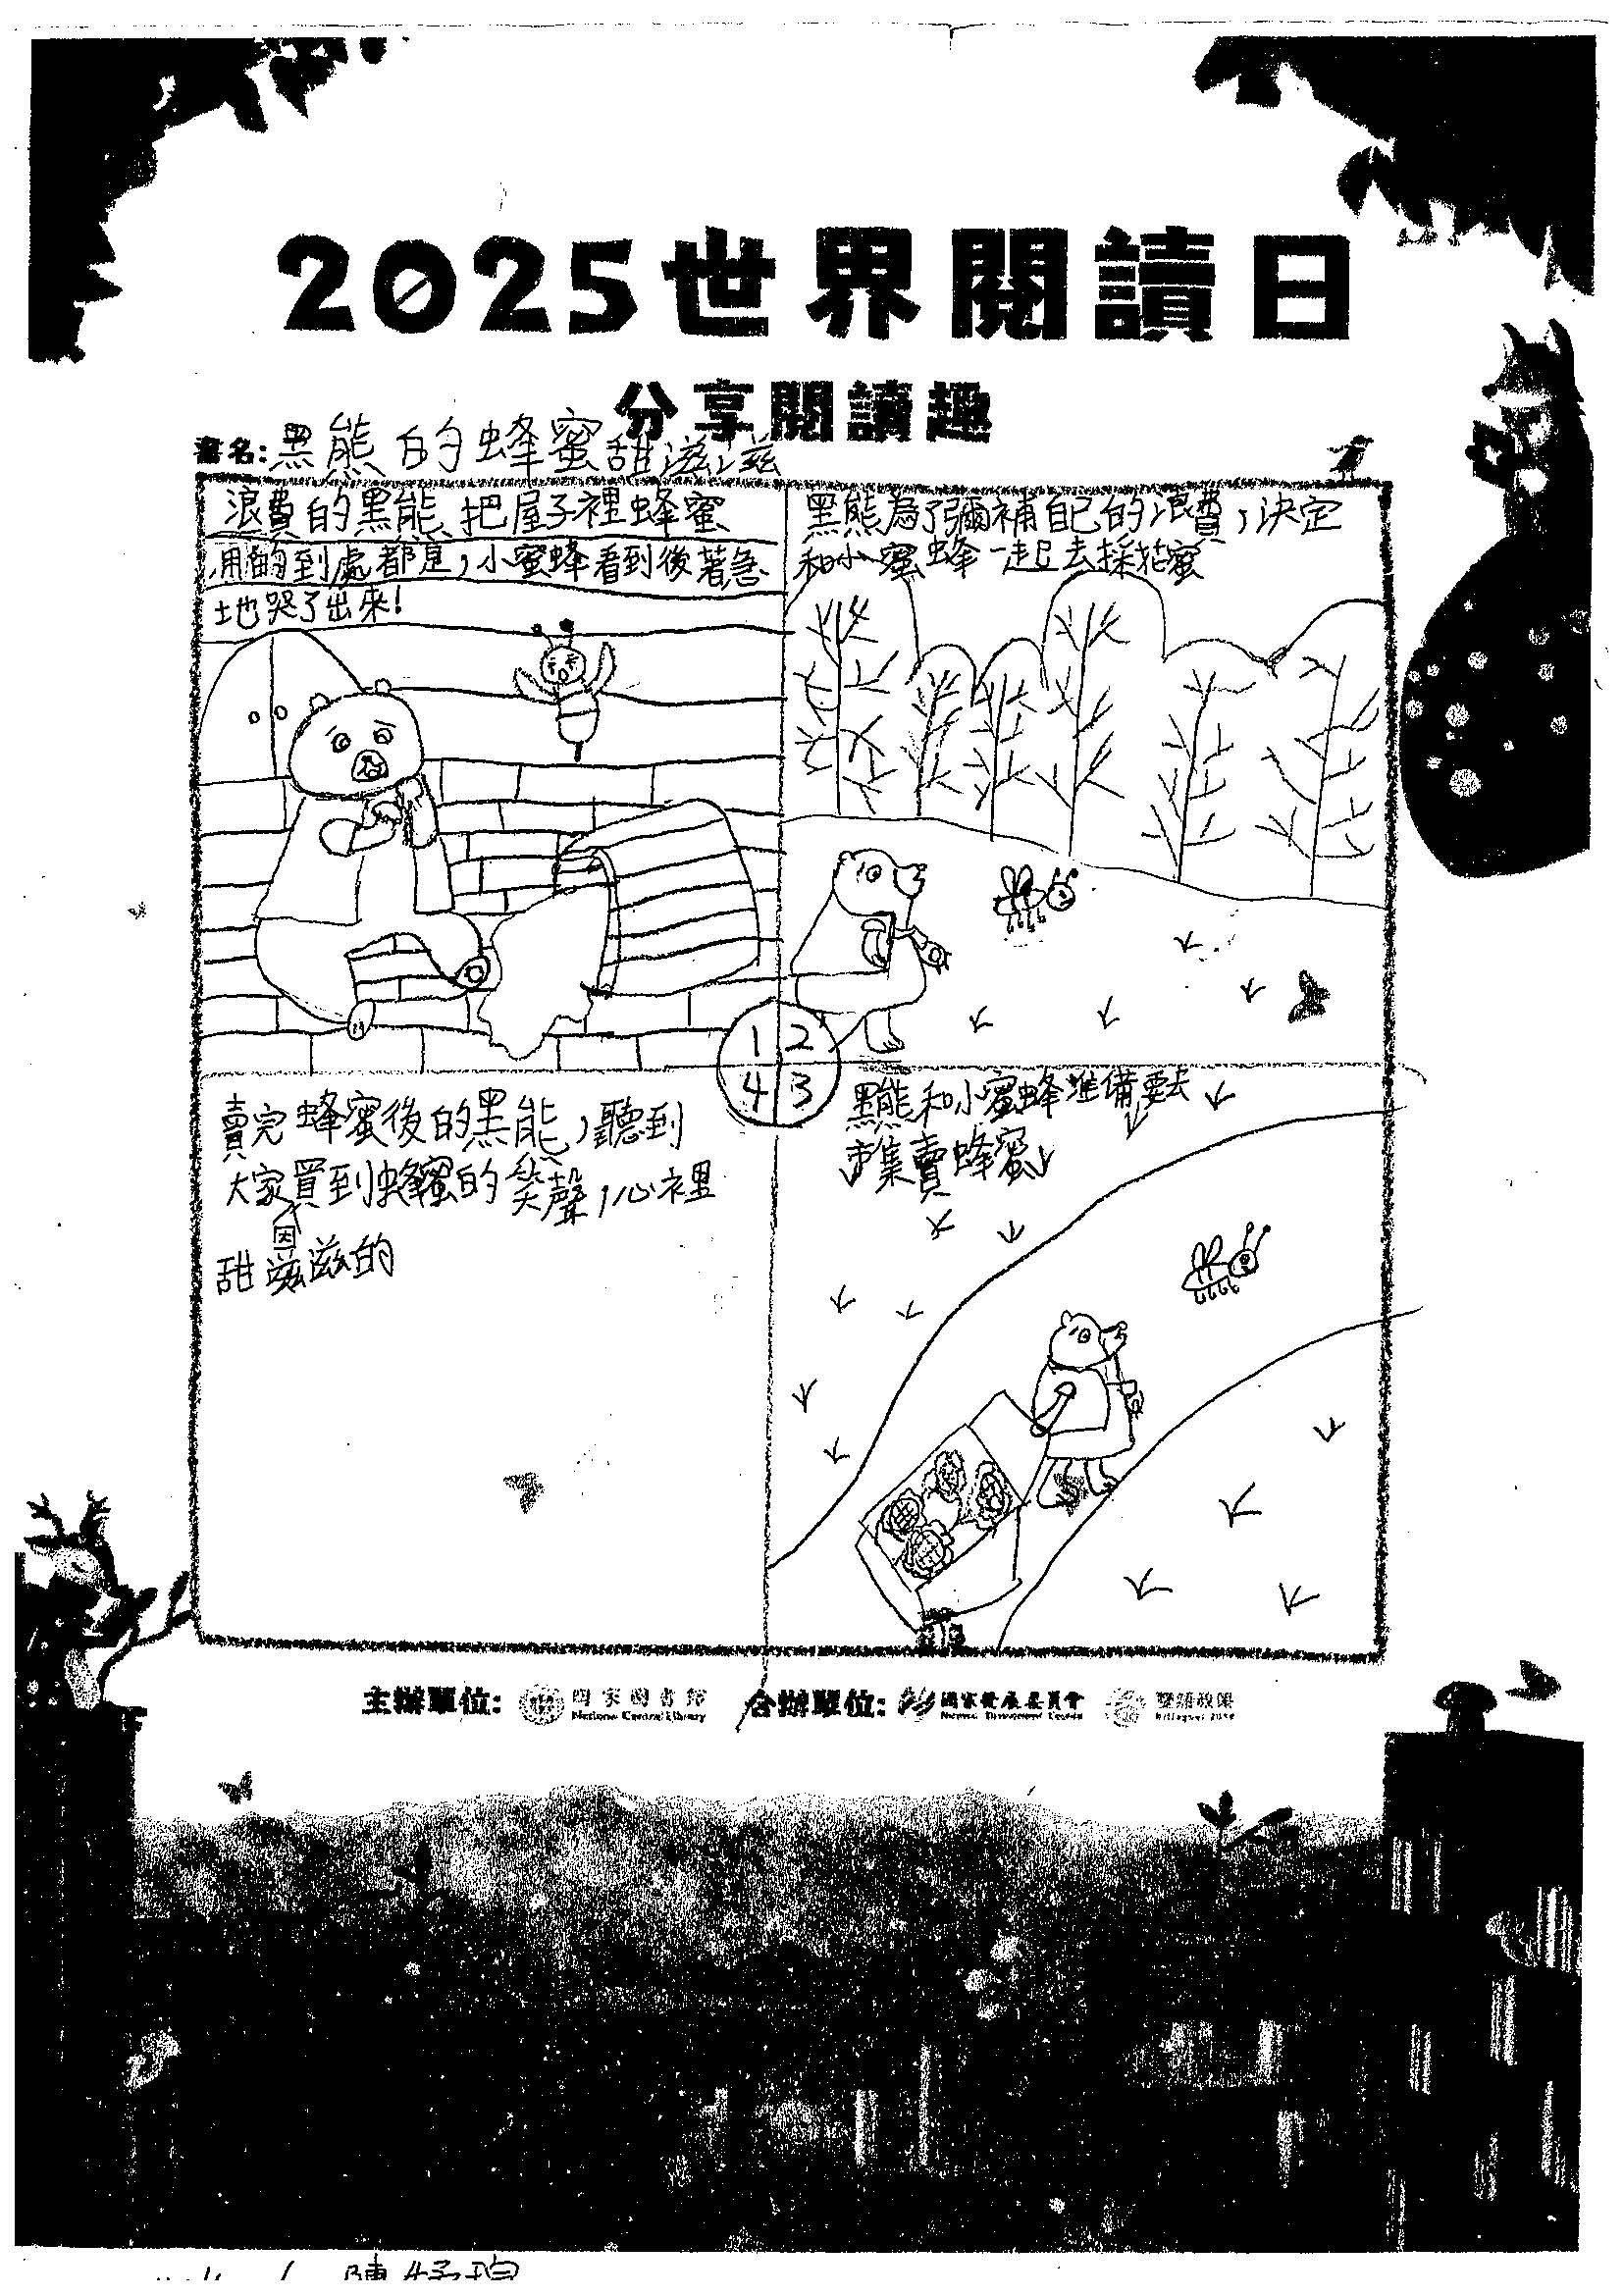 2025世界閱讀日
分享閱讀趣
書名:黑熊的蜂蜜甜滋滋
浪費的黑熊把屋子裡蜂蜜
用的到處都是,小蜜蜂看到後著急
地哭了出來!
黑熊為了彌補自己的浪費,決定
和小蜜蜂一起去採花蜜
1 2
4 3
黑熊和小蜜蜂準備要去
市集賣蜂蜜
賣完蜂蜜後的黑熊,聽到
大家買到蜂蜜的笑聲,心裡
因
甜滋滋的
主辦單位: 國家圖書館 合辦單位: 國家發展委員會
National Central Library National Development Council